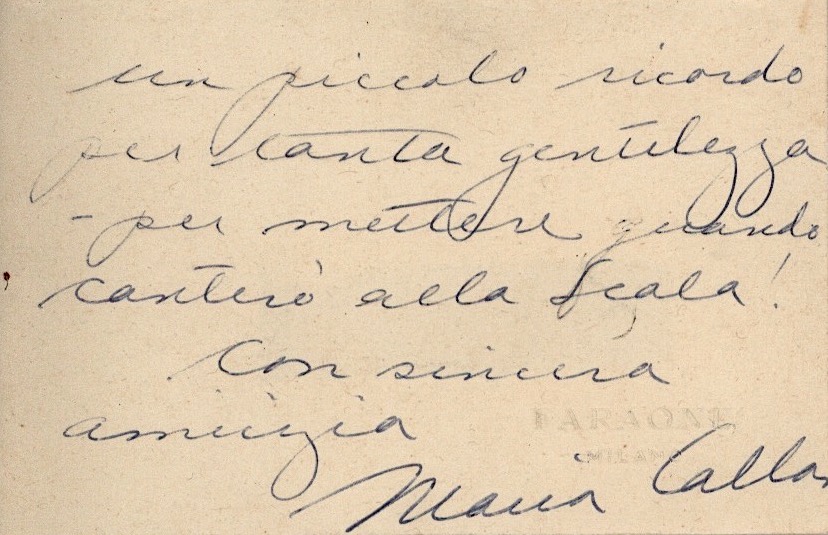 un piccolo ricordo
per tanta gentilezza
- per mettere quando
canterò alla Scala!
Con sincera
amicizia
Maria Callas